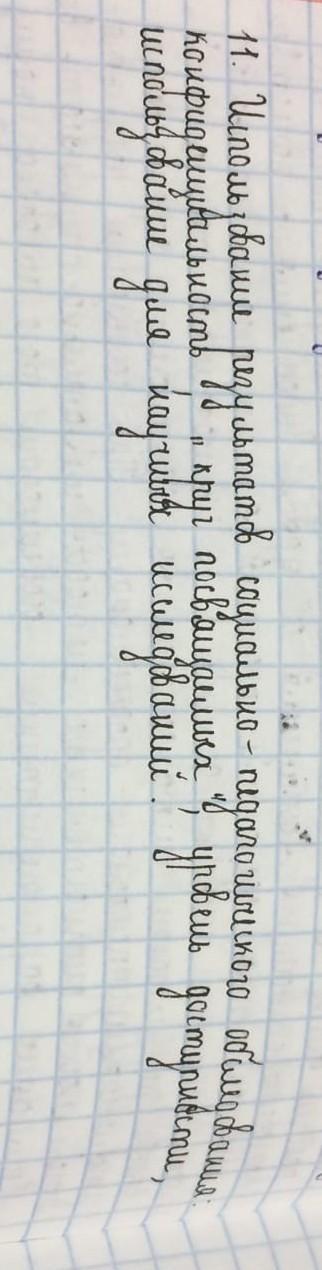 11. Использование результатов социально-педагогического обследования:
конфиденциальность, "круг посвящаемых", уровень доступности,
использование для научных исследований.